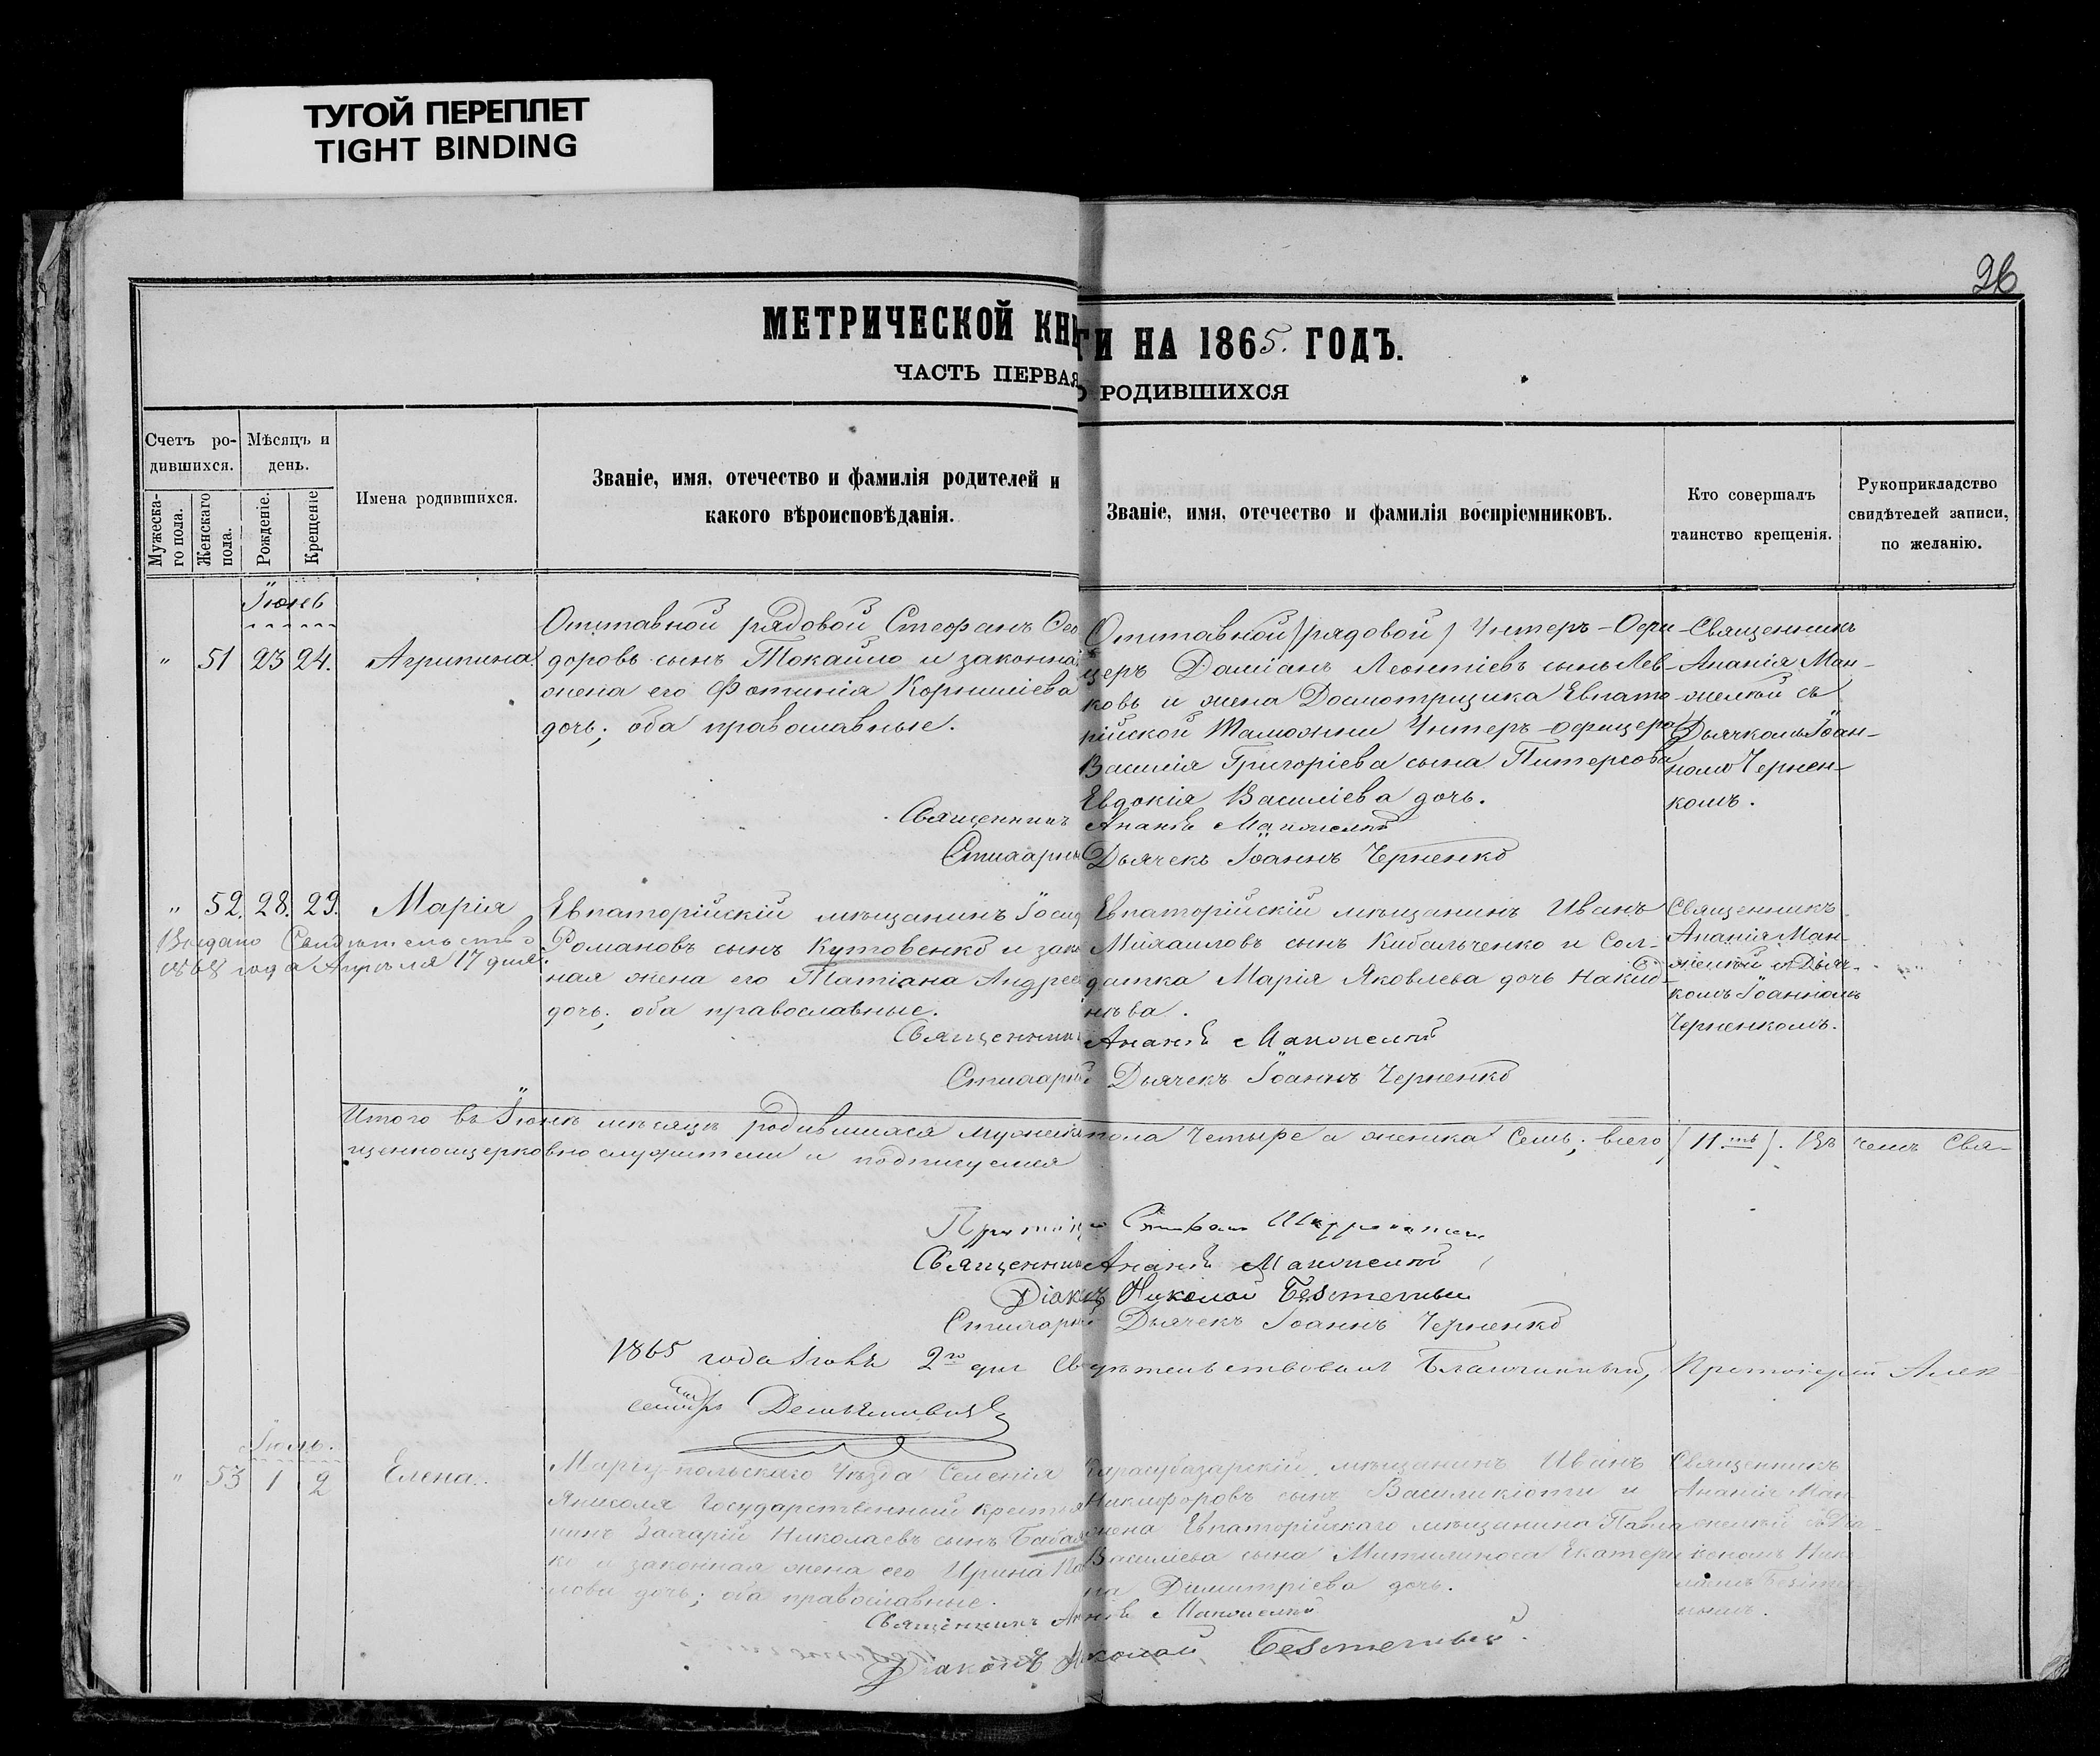 ТУГОЙ ПЕРЕПЛЕТ
TIGHT BINDING
26
МЕТРИЧЕСКОЙ КНИГИ НА 1865. ГОДЪ.
ЧАСТЬ ПЕРВАЯ О РОДИВШИХСЯ
Счетъ ро-
дившихся.
Мужеска-
го пола.
Женскаго
пола.
Мѣсяцъ и
день.
Рожденіе.
Крещеніе
Имена родившихся.
Званіе, имя, отечество и фамилія родителей и
какого вѣроисповѣданія.
Званіе, имя, отечество и фамилія воспріемниковъ.
Кто совершалъ
таинство крещенія.
Рукоприкладство
свидѣтелей записи,
по желанію.
Іюнь
" 51 23 24. Агрипина.
Отставной рядовой Стефанъ Ѳео
доровъ сынъ Токайло и законная
жена его Фотинія Корниліева
дочь; оба православные.
Отставной (рядовой) Унтеръ-Офи
церъ Даміанъ Леонтіевъ сынъ Лев-
ковъ и жена Досмотрщика Евпато
рійской Таможни Унтеръ-офицера
Василія Григоріева сына Питерсова
Евдокія Василіева дочь.
Священникъ
Ананія Ман-
желей съ
Дьячкомъ Іоан-
номъ Чернен-
комъ.
Священникъ Ананія
Стихарный Дьячекъ Іоаннъ Черненко
" 52. 28. 29. Марія
Выдано Свидѣтельство
1868 года Апрѣля 17 дня.
Евпаторійскій мѣщанинъ Іосиф
Романовъ сынъ Кутовенко и закон
ная жена его Татіана Андреева
дочь; оба православные.
Евпаторійскій мѣщанинъ Иванъ
Михаиловъ сынъ Кибальченко и Сол-
датка Марія Яковлева дочь
Священникъ
Ананія Ман-
желей съ Дьяч-
комъ Іоанномъ
Черненкомъ.
Священникъ Ананія
Стихарный Дьячекъ Іоаннъ Черненко
Итого въ Іюнѣ мѣсяцѣ родившихся мужеска пола Четыре а женска Семь; всего (11ть). Въ чемъ Свя-
щенноцерковнослужители и подписуемся
Священникъ Ананія
Діаконъ Николай Безтепный
Стихарный Дьячекъ Іоаннъ Черненко
1865 года Іюля 2го дня Свидѣтельствовалъ Благочинный, Протоіерей Алек
сандръ
Іюль.
" 53 1 2 Елена.
Маріупольскаго Уѣзда Селенія
Янисоля Государственный крестья
нинъ Захарій Николаевъ сынъ
и законная жена его Ирина Пав
лова дочь; оба православные.
Карасубазарскій мѣщанинъ Иванъ
Никифоровъ сынъ Василикіоти и
жена Евпаторійскаго мѣщанина Павла
Василіева сына Митилиноса Екатери
на Димитріева дочь.
Священникъ
Ананія Ман
желей съ Діа-
кономъ Нико
Священникъ Ананія
Діаконъ Николай Безтепный.